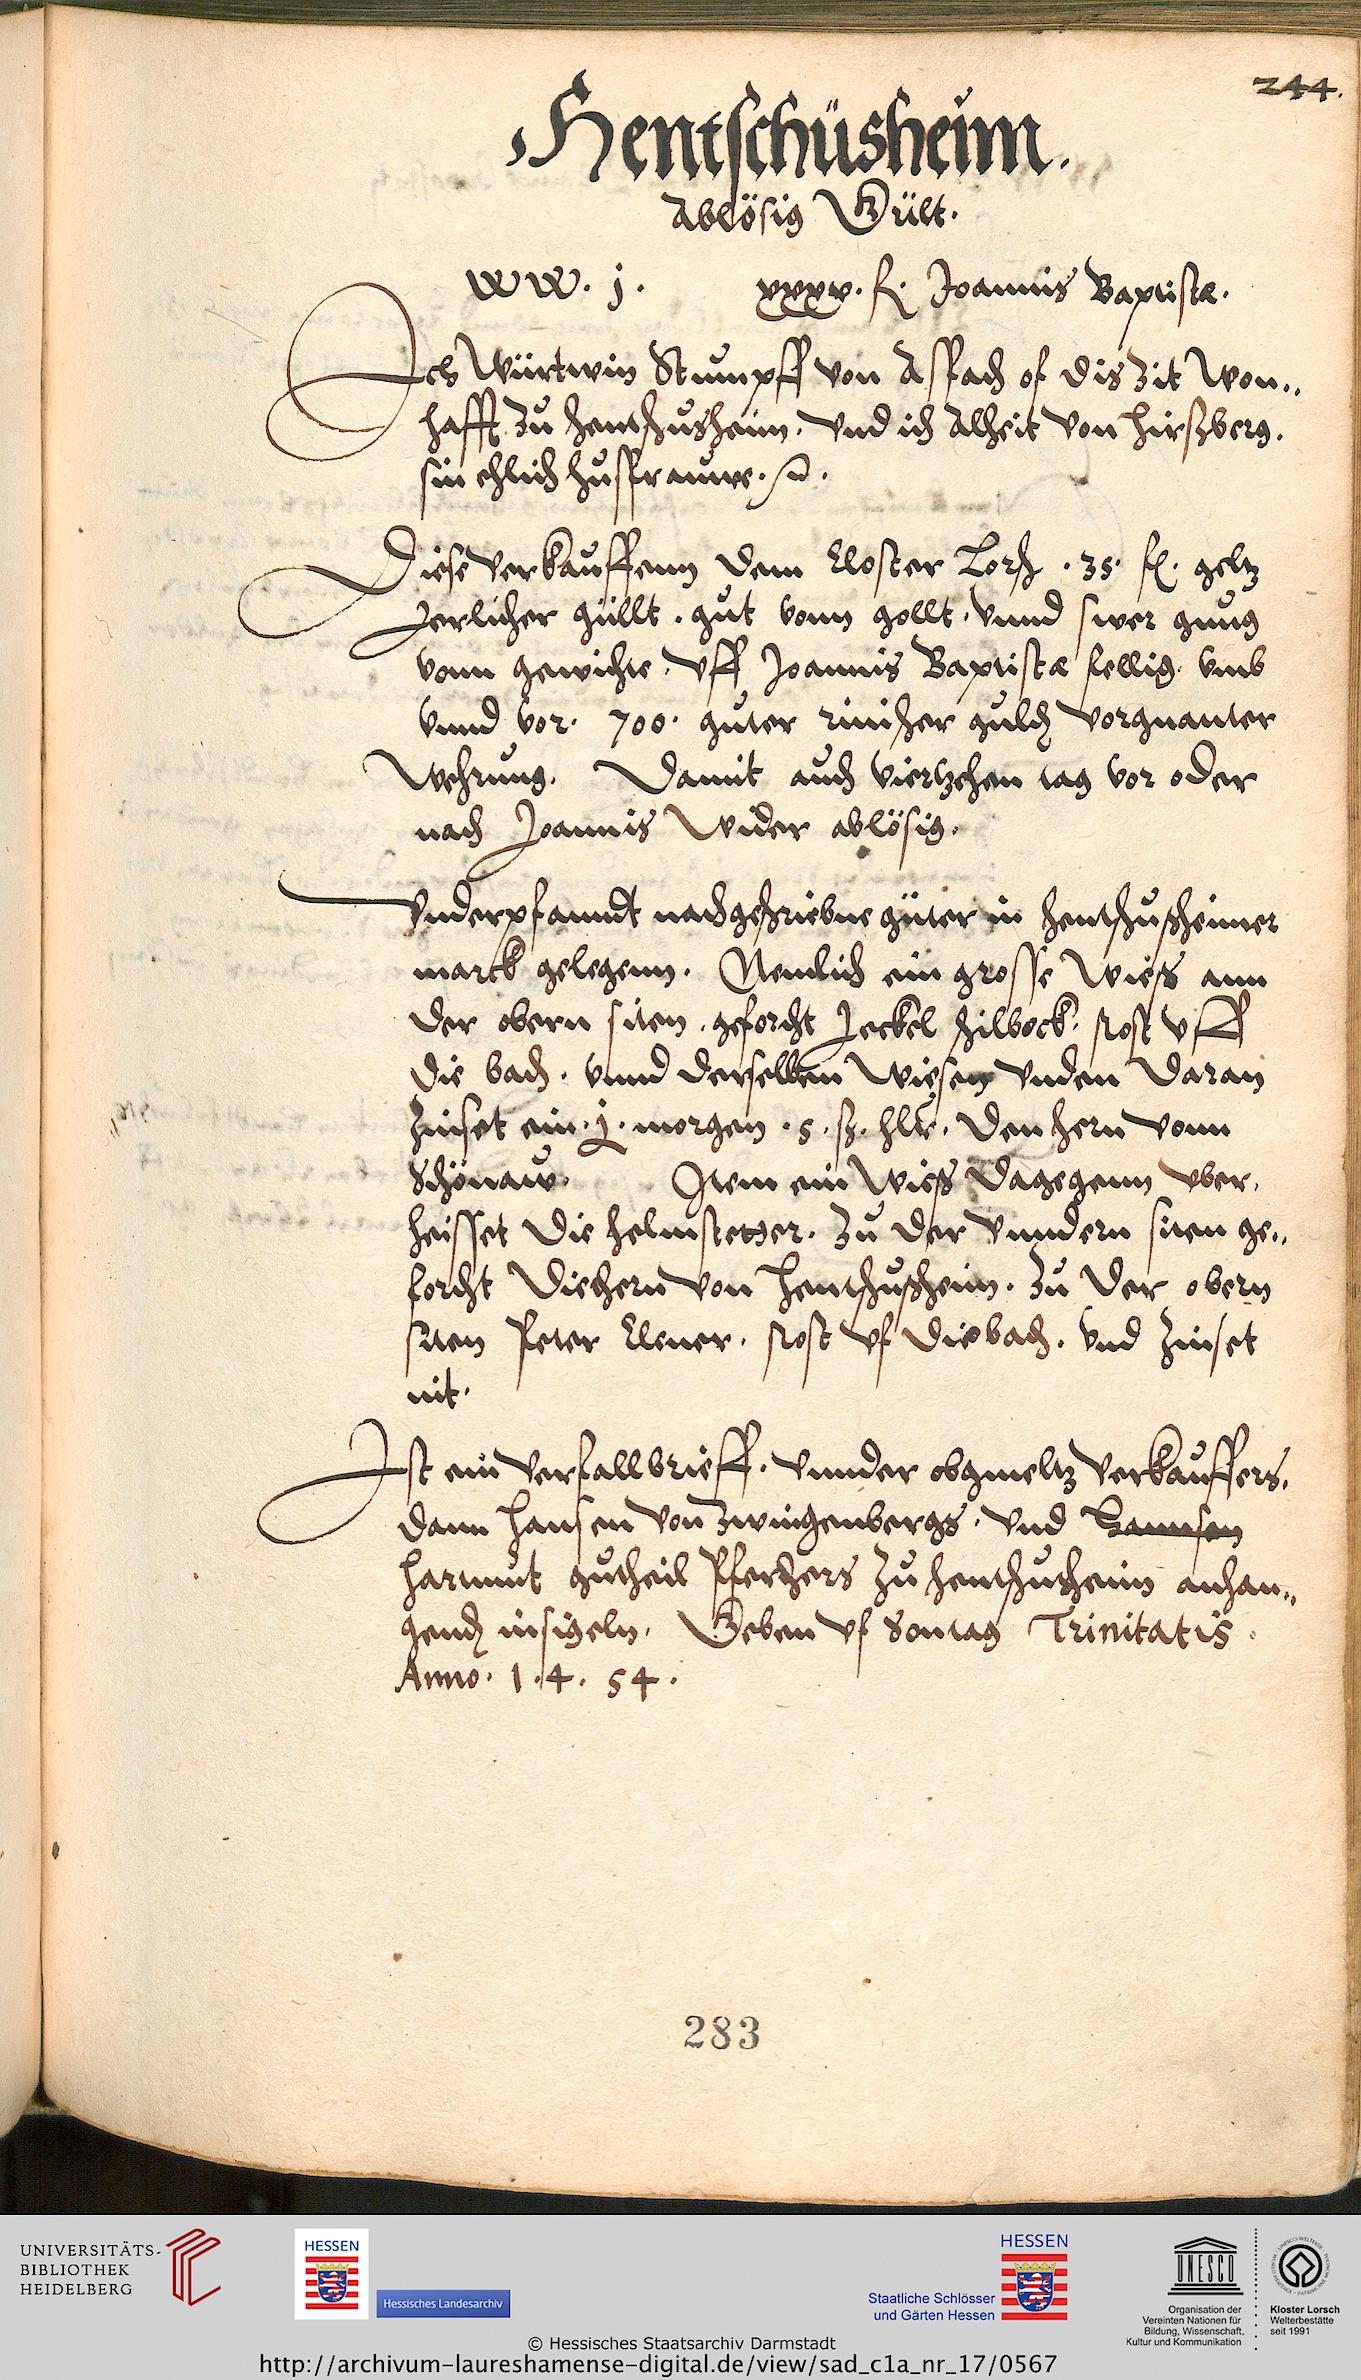 244.
Hentschüsheim.
Ablösig Gült.
WW. j. xxxv. fl. Joannis Baptistæ.
Ich Würtwin Stumpff von Assach of dis Zit Won„
hafft Zu Hentschusheim. Vnd ich Alheit von Hirsberg.
sin ehlich husfrauwe.
Diese verkauffenn dem Closter Lorsch . 35. fl. geltz
Jerlicher güllt . gut vonn gollt . vnnd swer gnug
vonn gewichte . vff Joannis Baptistæ fellig. vmb
vnnd vor. 700. guter rinischer guld vorgnanter
Wehrung. Damit auch viertzehen tag vor oder
nach Joannis wider ablösig.
Vnderpfanndt nachgeschriebne güter in Hentschusheimer
marck gelegenn. Nemlich ein grosse Wiess ann
der obern siten . geforcht Jeckel Hilbock. stost vff
die bach. vnnd derselben Wiesen vnden daran
Zinset ein . j . morgen . 5 . ß. hlr. den hern vonn
Schönaw. Item ein Wiess dagegenn vber.
heisset die helmstetter. Zu der vnndern siten ge„
forcht die hern von Hentschusheim. Zu der obern
siten Peter Elner. stost vf die bach. vnd Zinset
nit.
Ist ein verfallbrieff. vnnder obgmeltz verkauffers.
dann Hansen von Zwingenbergs. vnd
Hartmut gutheil Pferhers Zu Hentschusheim anhan„
gend insigeln. Geben vf Sontag Trinitatis.
Anno. 1.4. 54.
283
UNIVERSITÄTS-
BIBLIOTHEK
HEIDELBERG
HESSEN
Hessisches Landesarchiv
HESSEN
Staatliche Schlösser
und Gärten Hessen
UNESCO
Organisation der
Vereinten Nationen für
Bildung, Wissenschaft,
Kultur und Kommunikation
Kloster Lorsch
Welterbestätte
seit 1991
© Hessisches Staatsarchiv Darmstadt
http://archivum-laureshamense-digital.de/view/sad_c1a_nr_17/0567